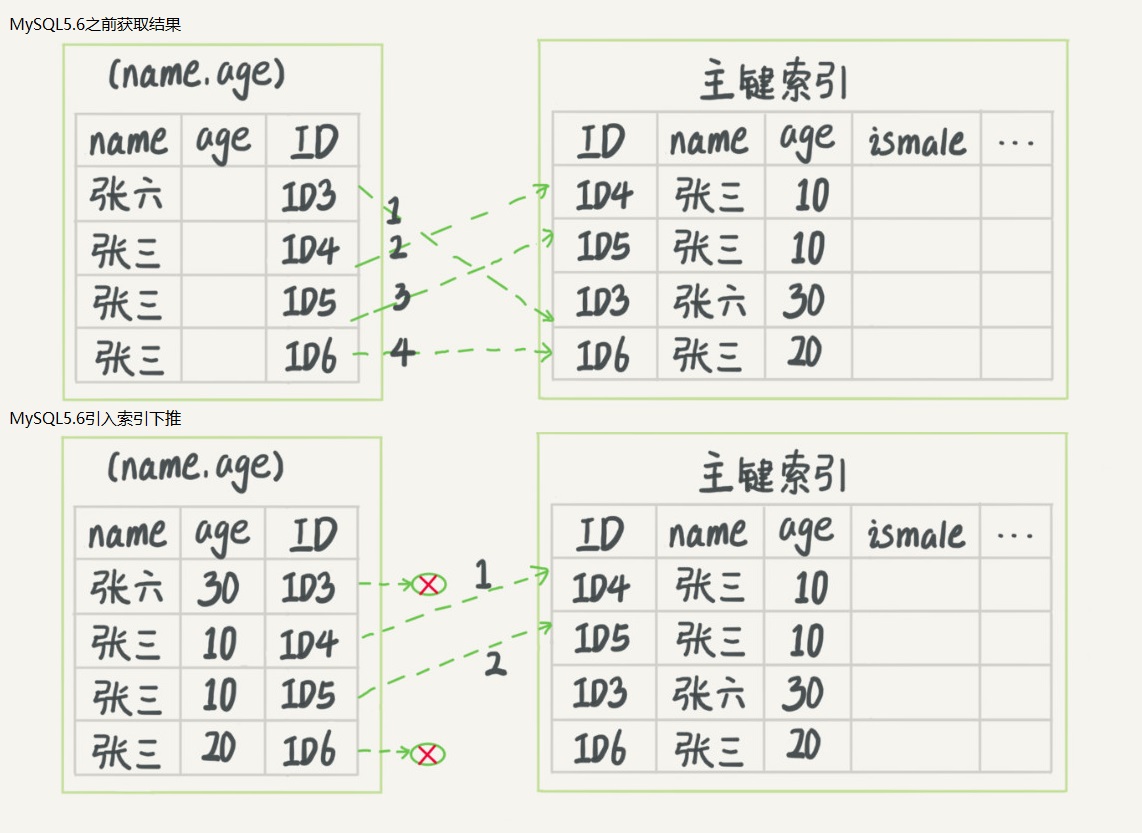 MySQL5.6之前获取结果
(name.age)
name age ID
张六 ID3
张三 ID4
张三 ID5
张三 ID6
1
2
3
4
主键索引
ID name age ismale ...
ID4 张三 10
ID5 张三 10
ID3 张六 30
ID6 张三 20
MySQL5.6引入索引下推
(name.age)
name age ID
张六 30 ID3
张三 10 ID4
张三 10 ID5
张三 20 ID6
1
2
主键索引
ID name age ismale ...
ID4 张三 10
ID5 张三 10
ID3 张六 30
ID6 张三 20